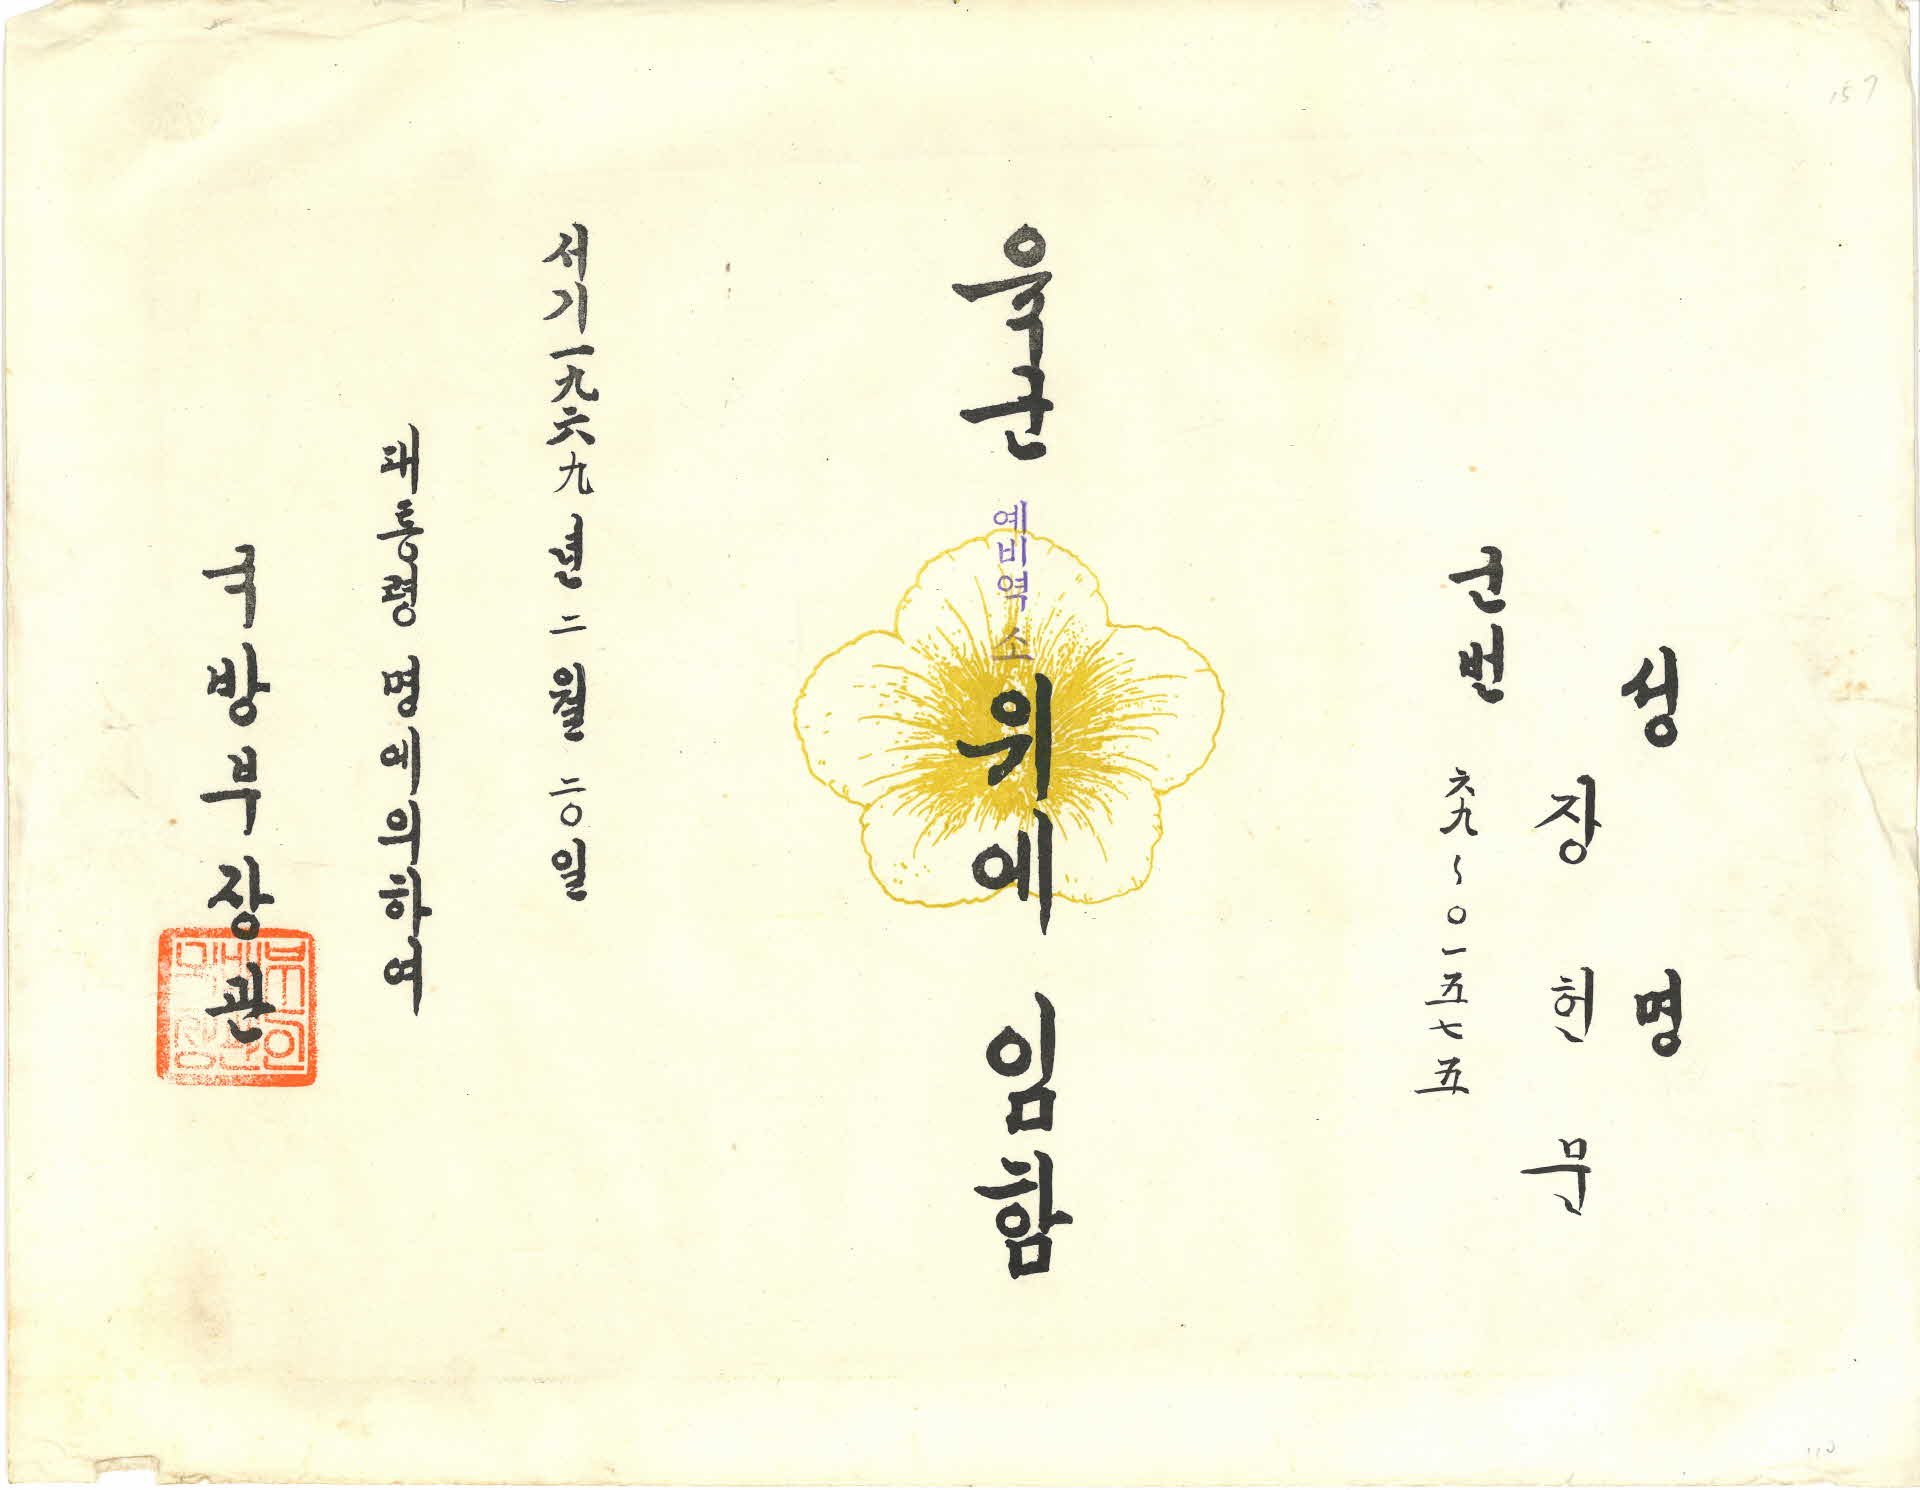 성명
장헌문
군번 六九~〇一五七五
육군 예비역 소위에 임함
서기一九六九년 二월 二〇일
대통령 명에의하여
국방부장관
157